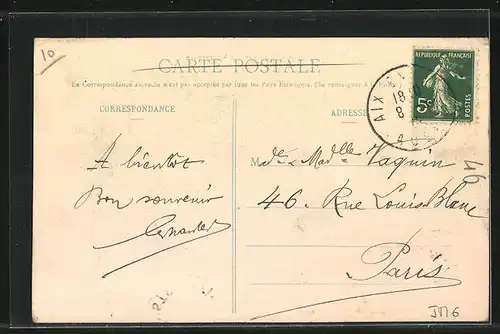 10
CARTE POSTALE
La Correspondance au recto n'est pas acceptée par tous les Pays Étrangers. (Se renseigner à la Poste)
CORRESPONDANCE
ADRESSE
RÉPUBLIQUE FRANÇAISE
5c
POSTES
AIX
18
8
A bientôt
Bon souvenir
Mde Madlle Vaquin
46. Rue Louis Blanc
Paris
46
JM6